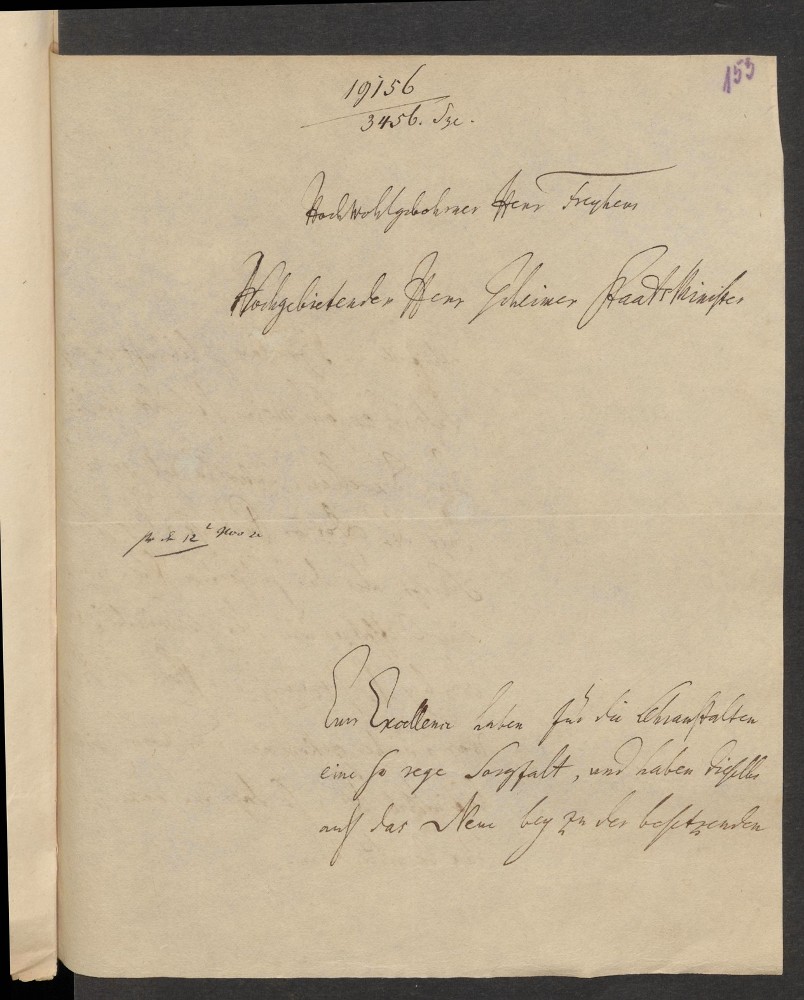 153
19156
3456.
Hochwohlgebohrner Herr Freyherr
Hochgebietender Herr Geheimer StaatsMinister
12 Nov
Eure Excellenz haben für die Lehranstalten
eine so rege Sorgfalt, und haben dieselbe
auf das Neue bey zu der besetzenden